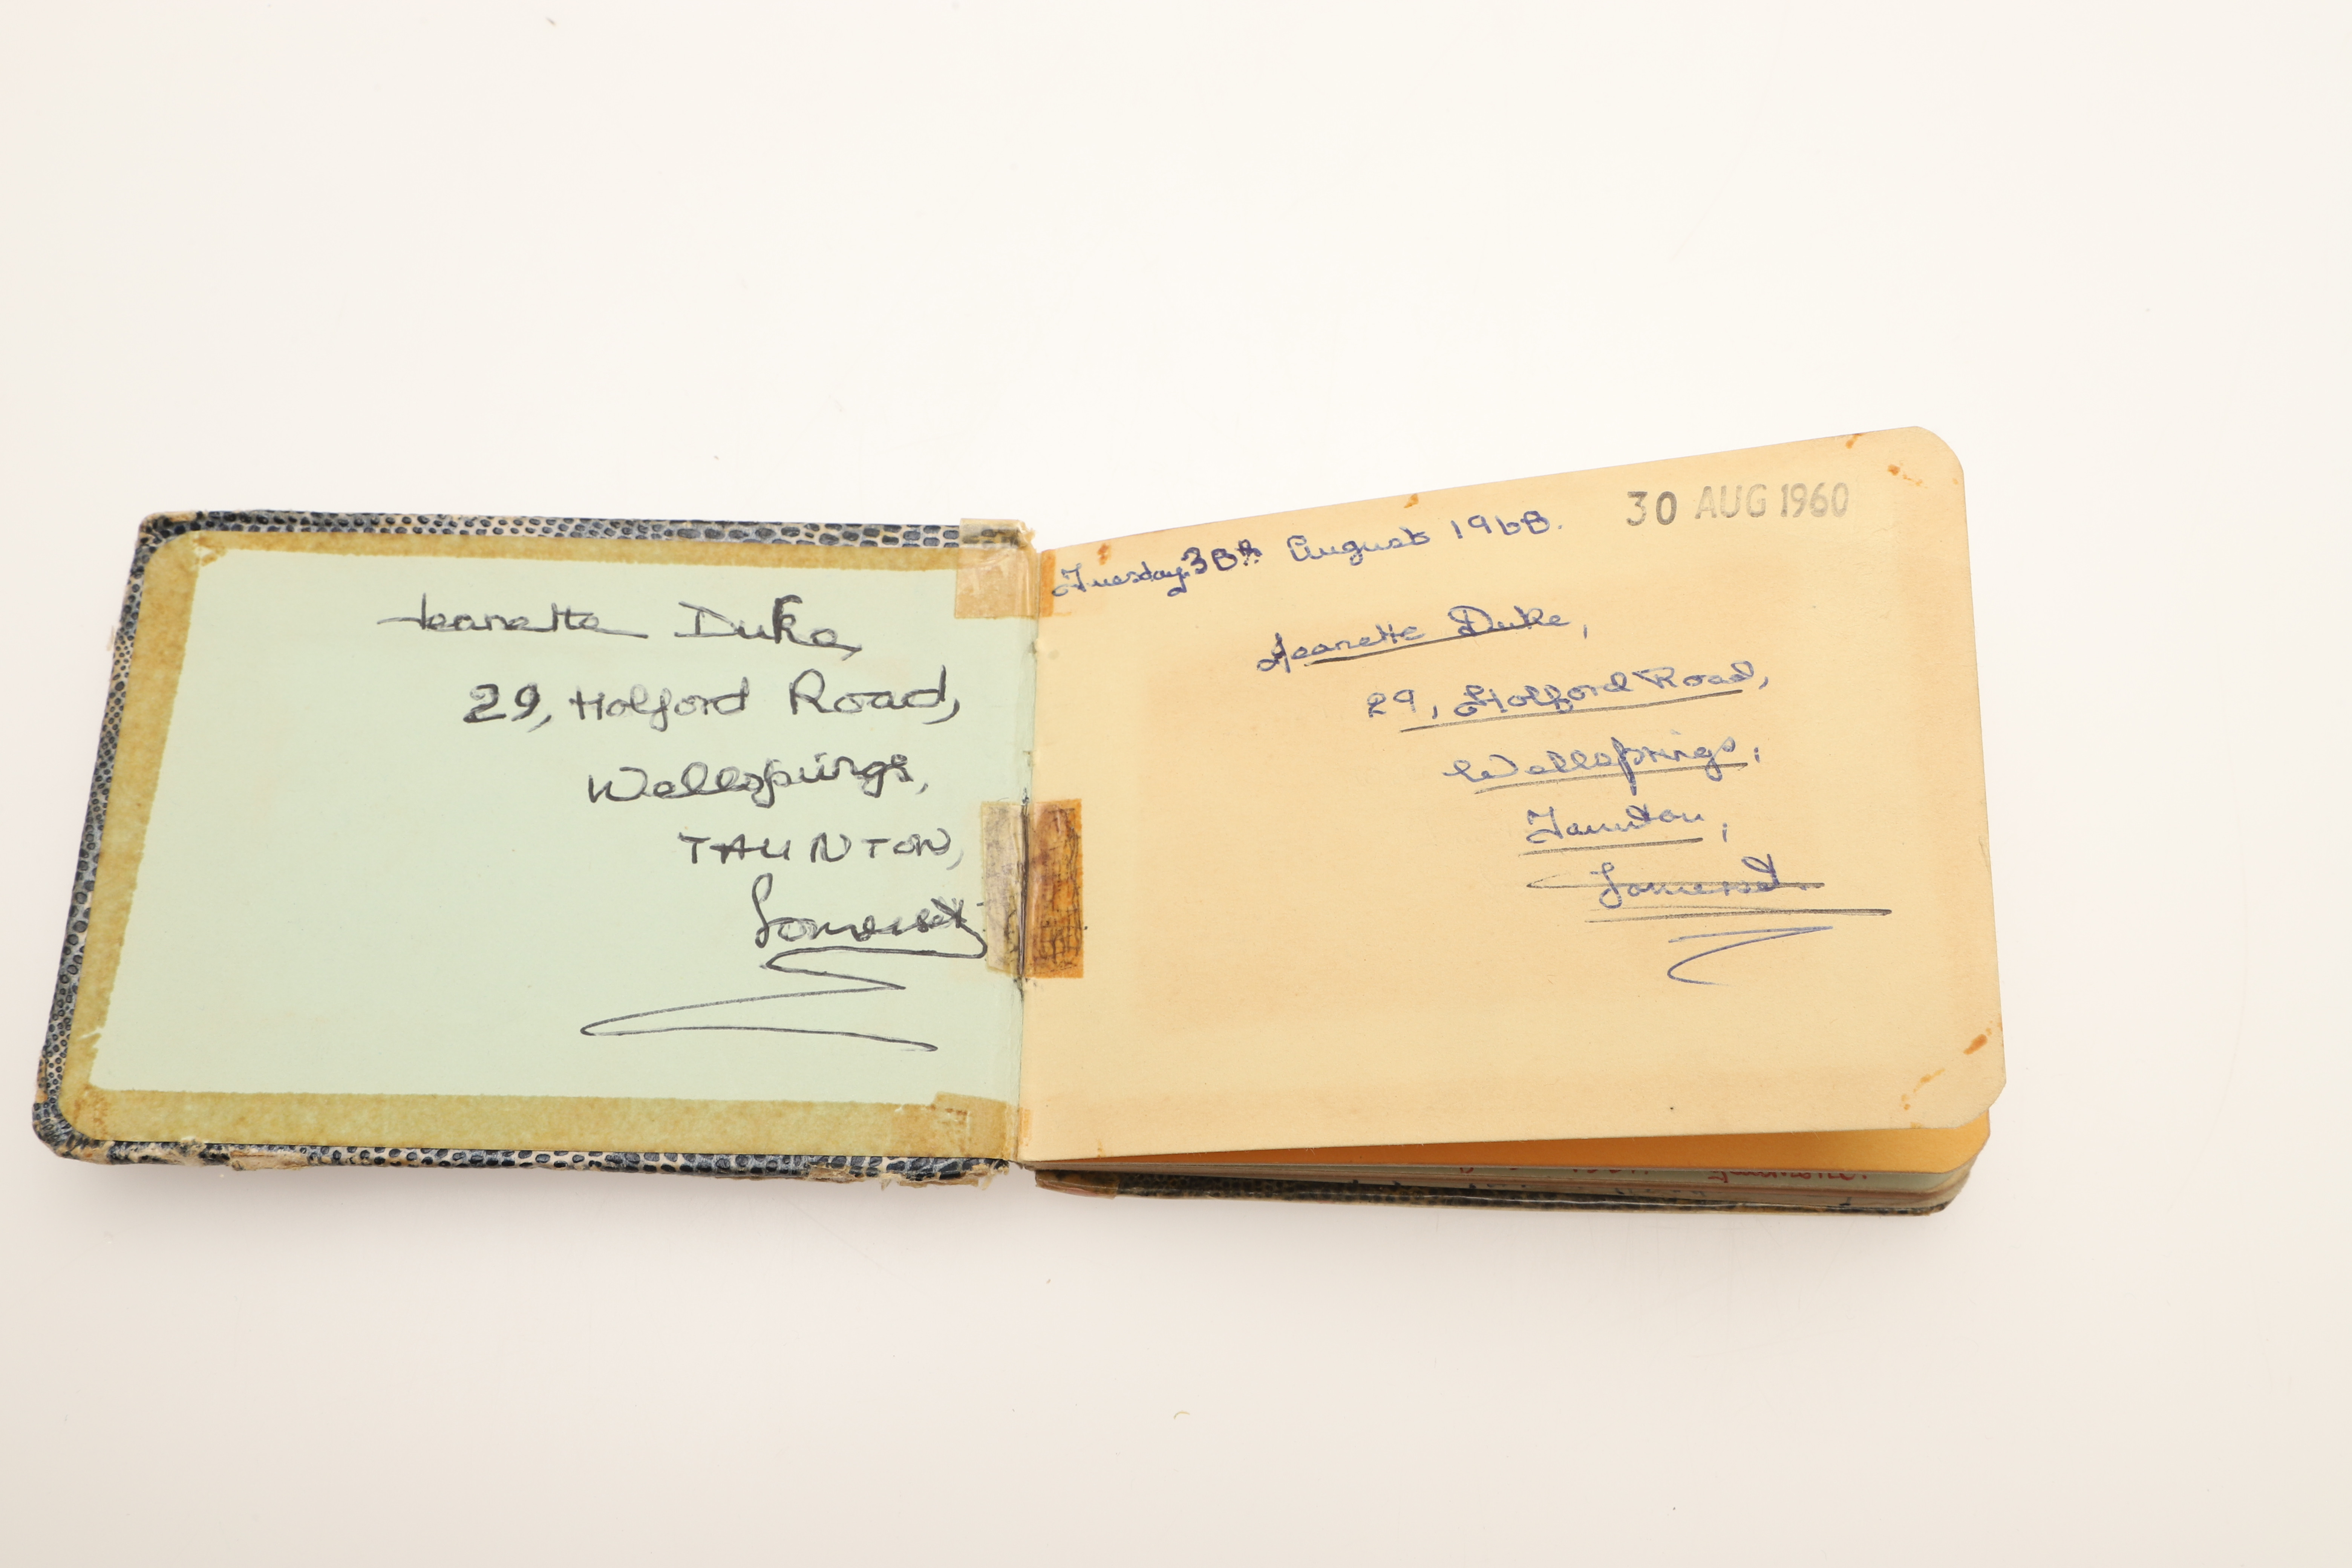 Jeanette Duke,
29, Holford Road,
Wellsprings,
TAUNTON,
Somerset
30 AUG 1960
Tuesday 30th August 1960.
Jeanette Duke,
29, Holford Road,
Wellsprings,
Taunton,
Somerset.